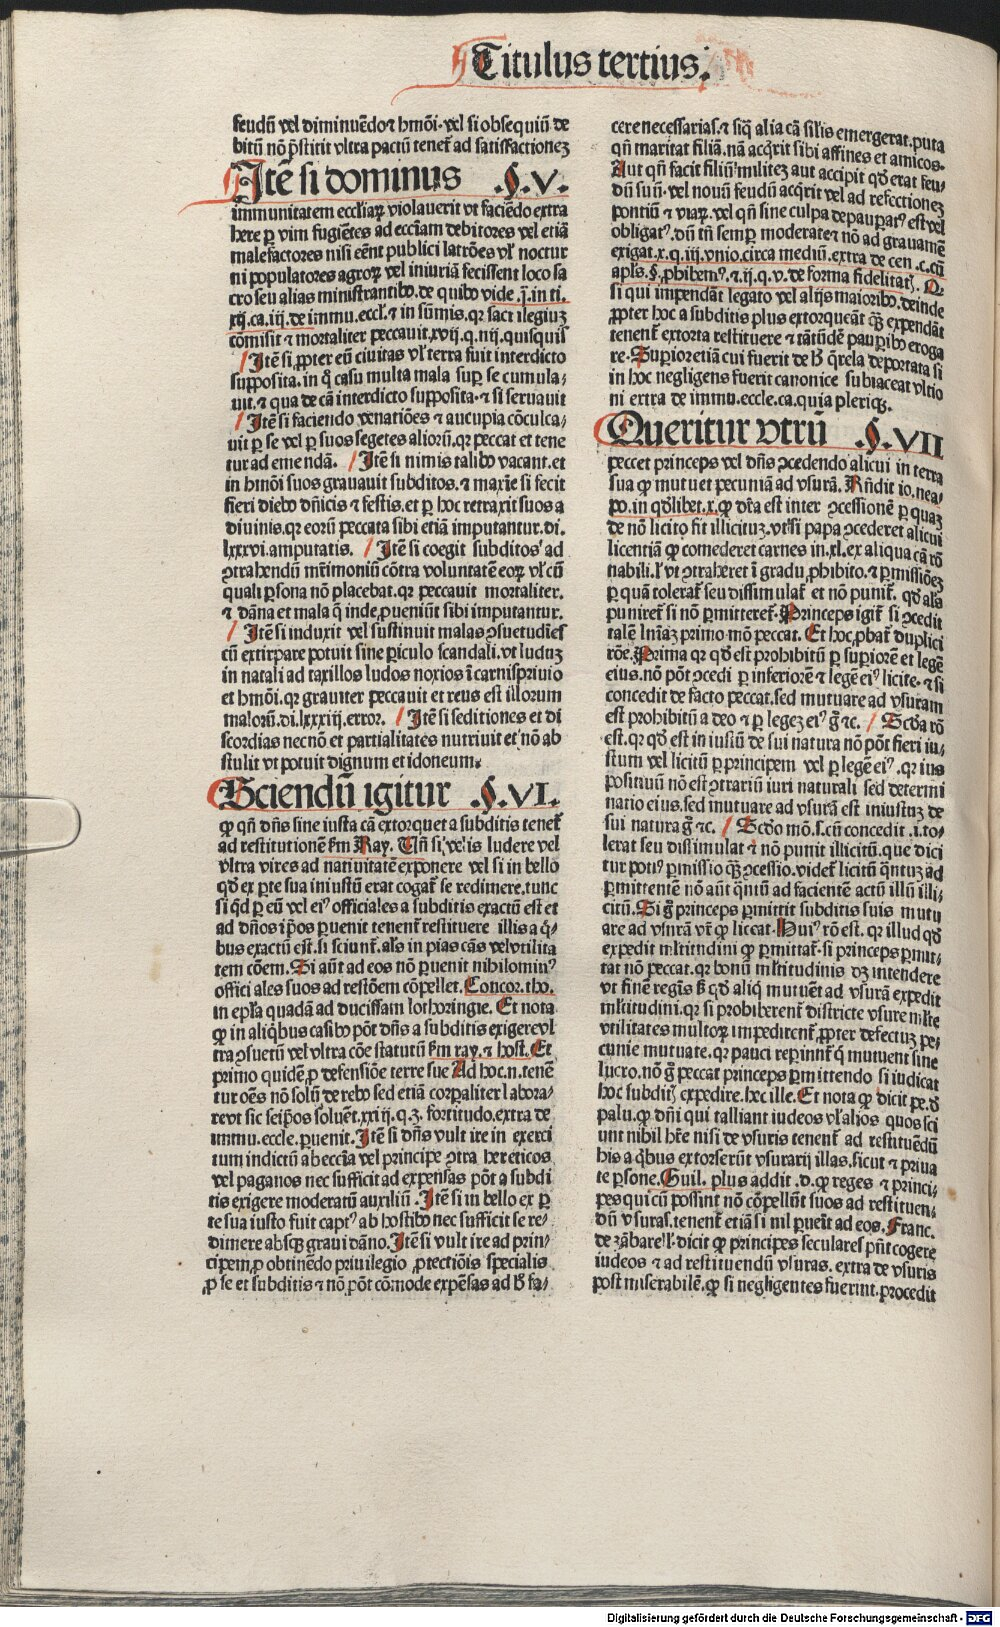 Titulus tertius.
feudū vel diminuēdo ⁊ hmōi. vel si obsequiū de
bitū nō p̄stitit vltra pactū tenet̄ ad satisfactionez
Itē si dominus .§.V.
immunitatem eccl'iaꝝ violauerit vt faciēdo extra
here ꝑ vim fugiētes ad eccl'iam debitores vel etiā
malefactores nisi eēnt publici latrōes vl' noctur
ni populatores agroꝝ vel iniuriā fecissent loco sa
cro seu alias ministrantibꝰ. de quibꝰ vide .j. in ti.
xij. ca. iij. de immu. eccl'. ⁊ in sūmis. qꝛ sacrilegiuz
comisit ⁊ mortaliter peccauit. xvij. q. iiij. quisquis
Itē si ꝓpter eū ciuitas vl' terra fuit interdicto
supposita. in q̄ casu multa mala sup̱ se cumula-
uit. ⁊ qua de cā interdicto supposita. ⁊ si seruauit
Itē si faciendo venatiōes ⁊ aucupia cōculca-
uit ꝑ se vel ꝑ suos segetes alioꝝ. qꝛ peccat et tene
tur ad emendā. Itē si nimis talibꝰ vacant. et
in hmōi suos grauauit subditos. ⁊ maxīe si fecit
fieri diebꝰ dn̄icis ⁊ festis. et ꝑ hoc retraxit suos a
diuinis. qꝛ eorū peccata sibi etiā imputantur. di.
lxxxvi. amputatis. Itē si coegit subditos ad
ꝯtrahendū mr̄imoniū cōtra voluntatē eoꝝ vl' cū
quali ꝑsona nō placebat. qꝛ peccauit mortaliter.
⁊ dāna et mala q̄ inde ꝓueniūt sibi imputantur.
Itē si induxit vel sustinuit malas ꝯsuetudīes
cū extirpare potuit sine ꝑiculo scandali. vt luduz
in natali ad taxillos ludos noxios ī carnispriuio
et hmōi. qꝛ grauiter peccauit et reus est illorum
malorū. di. lxxxiij. error. Itē si seditiones et di
scordias necnō et partialitates nutriuit et nō ab
stulit vt potuit dignum et idoneum.
Sciendū igitur .§.VI.
ꝙ qn̄ dn̄s sine iusta cā extorquet a subditis tenet̄
ad restitutionē s'm Ray. Vn̄ si velis ludere vel
vltra vires ad natiuitatē exponere vel si in bello
qd' ex ꝑte sua iniustū erat cogat̄ se redimere. tunc
si qd' ꝑ eū vel eiꝰ officiales a subditis exactū est et
ad dn̄os ip̄os ꝑuenit tenent̄ restituere illis a q̄-
bus exactū est. si sciunt̄. al's in pias cās vel vtilita
tem cōem. Si aūt ad eos nō ꝑuenit nihilominꝰ
officiales suos ad restōem cōpellet. Concor. tho.
in epl'a quadā ad ducissam lothoringie. Et nota
ꝙ in aliq̄bus casibꝰ pōt dn̄s a subditis exigere vl
tra ꝯsuetū vel vltra cōe statutū s'm ray. ⁊ host. Et
primo quidē ꝓ defensiōe terre sue Ad hoc. n. tenē
tur oēs nō solū de rebꝰ sed etiā corꝑaliter labora-
re vt sic seip̄os soluēt. xxiij. q. 3. fortitudo. extra de
immu. eccle. ꝑuenit. Itē si dn̄s vult ire in exerci
tum indictū ab eccl'ia vel principe ꝯtra hereticos
vel paganos nec sufficit ad expensas pōt a subdi
tis exigere moderatū auxiliū. Itē si in bello ex ꝑ
te sua iusto fuit captꝰ ab hostibꝰ nec sufficit se re-
dimere absqꝫ graui dāno. Itē si vult ire ad prin-
cipem ꝓ obtinēdo priuilegio ꝓtectiōis specialis
ꝓ se et subditis ⁊ nō pōt cōmode expēsas ad h' fa-
cere necessarias. ⁊ siq̄ alia cā sil'is emergerat. puta
qn̄ maritat filiā. nā acq̄rit sibi affines et amicos.
Aut qn̄ facit filiū militez aut accipit qd' erat feu-
dū suū. vel nouū feudū acq̄rit vel ad refectionez
pontiū ⁊ viaꝝ. vel qn̄ sine culpa depauꝑatꝰ est vel
obligatꝰ. dū tn̄ semꝑ moderate ⁊ nō ad grauamē
exigat. x. q. iij. vnio. circa mediū. extra de cen. c. cū
apl's. §. ꝓhibemꝰ. ⁊ ij. q. v. de forma fidelitat̄.
si qui impendāt legato vel alijs maioribꝰ. deinde
ꝓpter hoc a subditis plus extorqueāt qꝫ expendāt
tenent̄ extorta restituere ⁊ tātūdē pauꝑibꝰ eroga
re. Superior etiā cui fuerit de h' q̄rela deportata si
in hoc negligens fuerit canonice subiaceat vltio
ni extra de immu. eccle. ca. quia pleriqꝫ.
Queritur vtrū .§.VII
peccet princeps vel dn̄s ꝯcedendo alicui in terra
sua ꝙ mutuet pecuniā ad vsurā. Rn̄dit io. nea-
po. in qd'libet. x. ꝙ dr̄a est inter ꝯcessionē ꝑ quaz
de nō licito fit illicituz. vt si papa ꝯcederet alicui
licentiā ꝙ comederet carnes in .xl. ex aliqua cā rō
nabili. l' vt ꝯtraheret ī gradu ꝓhibito. ⁊ ꝑmissiōez
ꝑ quā tolerat̄ seu dissimulat̄ et nō punit̄. qd' al's
puniret̄ si nō ꝑmitteret̄. Princeps igit̄ si ꝯcedit
talē lnīaz primo mō peccat. Et hoc ꝓbat̄ duplici
rōe. Prima qꝛ qd' est prohibitū ꝑ superiorē et legē
eius. nō pōt ꝯcedi ꝑ inferiorē ⁊ legē eiꝰ licite. ⁊ si
concedit de facto peccat. sed mutuare ad vsuram
est prohibitū a deo ⁊ ꝑ legez eiꝰ g̊ ⁊c. Scd'a rō
est. qꝛ qd' est iniustū de sui natura nō pōt fieri iu-
stum vel licitū ꝑ principem vel ꝑ legē eiꝰ. qꝛ ius
positiuū nō est ꝯtrariū iuri naturali sed determi
natio eius. sed mutuare ad vsurā est iniustuz de
sui natura g̊ ⁊c. Scd'o mō. s. cū concedit .i. to-
lerat seu dissimulat ⁊ nō punit illicitū. que dici
tur potiꝰ ꝑmissio qꝫ ꝯcessio. videt̄ licitū q̄ntuz ad
ꝑmittentē nō aūt q̄ntū ad facientē actū illū illi-
citū. Si g̊ princeps ꝑmittit subditis suis mutu
are ad vsurā vt̄ ꝙ liceat. Huiꝰ rō est. qꝛ illud qd'
expedit ml'titudini ꝙ ꝑmittat̄. si princeps ꝑmit-
tat nō peccat. qꝛ bonū ml'titudinis dꝫ intendere
vt finē regis s' qd' aliq̄ mutuēt ad vsurā expedit
ml'titudini. qꝛ si prohiberent̄ districte vsure ml'te
vtilitates multoꝝ impedirent̄. ꝓpter defectuz pe-
cunie mutuate. qꝛ pauci reperinnt̄ q̄ mutuent sine
lucro. nō g̊ peccat princeps ꝑmittendo si iudicat
hoc subditis expedire. hec ille. Et nota ꝙ dicit pe. d'
palu. ꝙ dn̄i qui talliant iudeos vl' alios quos sci
unt nihil hr̄e nisi de vsuris tenent̄ ad restituēdū
his a q̄bus extorserūt vsurarij illas. sicut ⁊ priua
te ꝑsone. Guil. plus addit .d. ꝙ reges ⁊ princi-
pes qui cū possint nō cōpellūt suos ad restituen-
dū vsuras. tenent̄ etiā si nil ꝑuēit ad eos. Franc.
de zābarel'. dicit ꝙ principes seculares pn̄t cogere
iudeos ⁊ ad restituendū vsuras. extra de vsuris
post miserabilē. ꝙ si negligentes fuerint. procedit
Digitalisierung gefördert durch die Deutsche Forschungsgemeinschaft - DFG